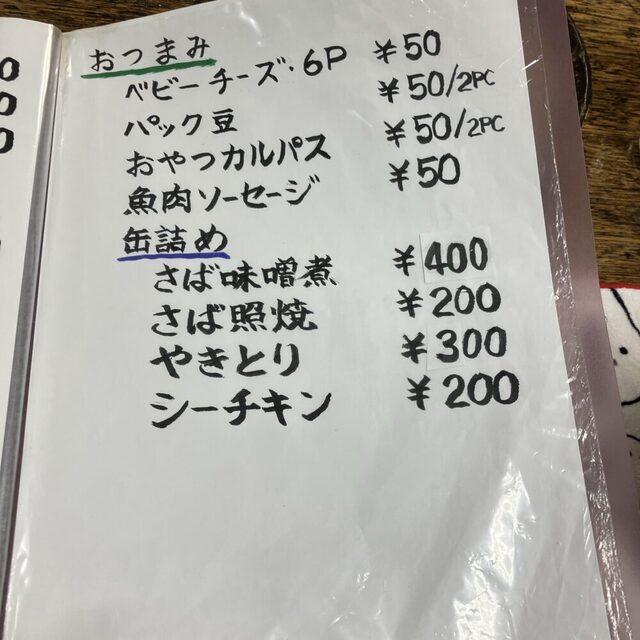 0
0
0
おつまみ
ベビーチーズ・6P ¥50
パック豆 ¥50/2PC
おやつカルパス ¥50/2PC
魚肉ソーセージ ¥50
缶詰め
さば味噌煮 ¥400
さば照焼 ¥200
やきとり ¥300
シーチキン ¥200